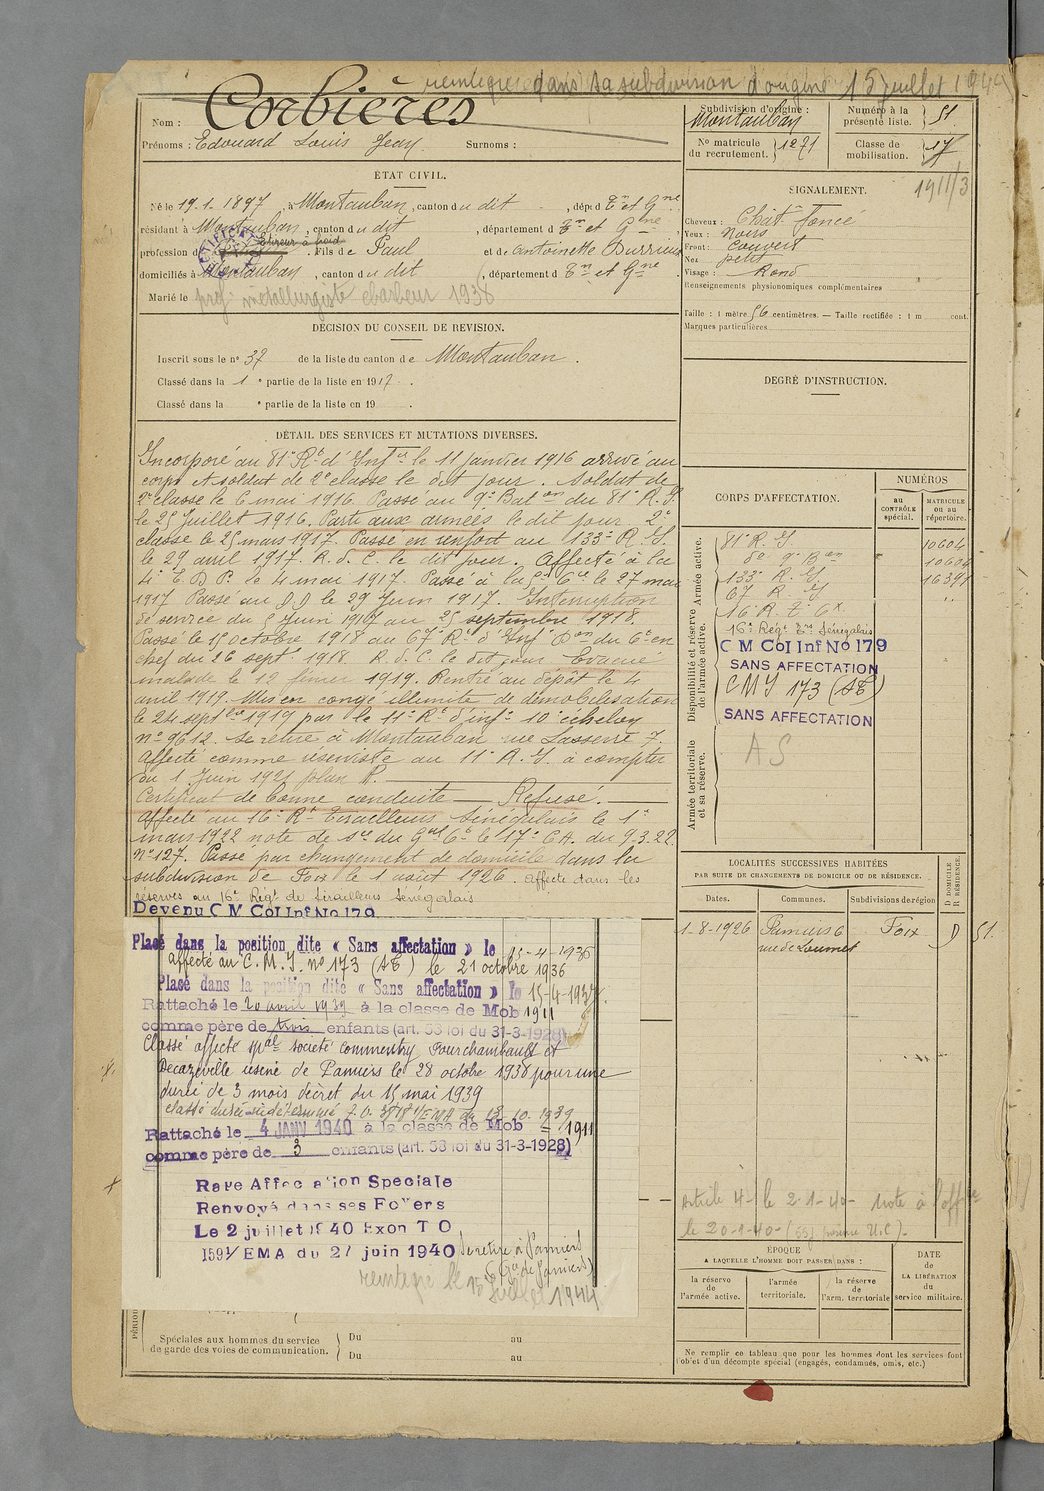 réintégré dans sa subdivision d'origine 15 juillet 1944
Nom : Corbières
Prénoms : Edouard Louis Jean Surnoms :
Subdivision d'origine : Montauban
No matricule du recrutement. 1271
Numéro à la présente liste. 51.
Classe de mobilisation. 17
1911/3
ÉTAT CIVIL.
Né le 19.1.1897, à Montauban, canton du dit, dép. d Tn et Gne
résidant à Montauban, canton du dit, département d Tn et Gne
profession d Étireur à froid. Fils de Paul et de Antoinette Durrieux
domiciliés à Montauban, canton du dit, département d Tn et Gne
Marié le
prof métallurgiste 1938
SIGNALEMENT.
Cheveux : Chât Foncé
Yeux : Noirs
Front : couvert
Nez petit
Visage : Rond
Renseignements physionomiques complémentaires
Taille : 1 mètre 56 centimètres. — Taille rectifiée : 1 m cent.
Marques particulières
DÉCISION DU CONSEIL DE REVISION.
Inscrit sous le n° 37 de la liste du canton de Montauban.
Classé dans la 1e partie de la liste en 1917.
Classé dans la e partie de la liste en 19 .
DEGRÉ D'INSTRUCTION.
DÉTAIL DES SERVICES ET MUTATIONS DIVERSES.
Incorporé au 81e Rt d'Infie le 11 janvier 1916 arrivé au
corps et soldat de 2e classe le dit jour. Soldat de
2e classe le 6 mai 1916. Passé au 9e Baton du 81e R.I.
le 25 Juillet 1916. Parti aux armées le dit jour. 2e
classe le 25 mars 1917. Passé en renfort au 133e R.I.
le 29 avril 1917. R.d.C. le dit jour. Affecté à la
4e E.D.P. le 4 mai 1917. Passé à la 5e Cie le 27 mai
1917 Passé au DD le 29 Juin 1917. Interruption
de service du 5 Juin 1917 au 25 septembre 1918.
Passé le 15 octobre 1918 au 67e Rt d'Inf Don du Gt en
chef du 26 sept. 1918. R.d.C. le dit jour Evacué
malade le 12 février 1919. Rentré au dépôt le 4
avril 1919. Mis en congé illimité de démobilisation
le 24 septbre 1919 par le 11e Rt d'inf. 10e échelon
n° 9612. Se retire à Montauban rue Lasserre 7
Affecté comme réserviste au 11e R.I. à compter
du 1 Juin 1921 plan A.
Certificat de bonne conduite — Refusé.
Affecté au 16e Rt Tirailleurs Sénégalais le 1er
mars 1922 note de sce du Gal Ct le 17e CA. du 9.3.22
n° 127. Passé par changement de domicile dans la
subdivision de Foix le 1 août 1926. Affecté dans les
réserves au 16e Régt de tirailleurs sénégalais
Devenu C M Col Inf No 179
Placé dans la position dite « Sans affectation » le 15-4-1936
affecté au C.M.I. n° 173 (AE) le 21 octobre 1936
Placé dans la position dite « Sans affectation » le 15-4-1937.
Rattaché le 20 avril 1939 à la classe de Mob 1911
comme père de trois enfants (art. 58 loi du 31-3-1928)
Classé affecté spal société Commentry Fourchambault et
Decazeville usine de Pamiers le 28 octobre 1938 pour une
durée de 3 mois décret du 15 mai 1939
classé durée indéterminée 13.10.1939
Rattaché le 4 JANV 1940 à la classe de Mob 1911
comme père de 3 enfants (art. 58 loi du 31-3-1928)
Raye Affectation Speciale
Renvoyé dans ses Foyers
Le 2 juillet 1940 Exon T O
1591/EMA du 27 juin 1940 Se retire à Pamiers
réintégré le 15 Juillet 1944
CORPS D'AFFECTATION.
NUMÉROS
au CONTRÔLE spécial.
MATRICULE ou au répertoire.
Armée active.
81e R.I. 10604
do 9e Bon 10604
133e R.I. 16391
67 R.I. "
Disponibilité et réserve de l'armée active.
16 R.T. Cx
16e Régt Trs Sénégalais
C M Col Inf No 179
SANS AFFECTATION
CMI 173 (AE)
SANS AFFECTATION
Armée territoriale et sa réserve.
AS
LOCALITÉS SUCCESSIVES HABITÉES
PAR SUITE DE CHANGEMENTS DE DOMICILE OU DE RÉSIDENCE.
D DOMICILE R RÉSIDENCE.
Dates. Communes. Subdivisions de région
1-8-1926 Pamiers Foix D 51.
rue de Loumet
Article 4- le 2-1-40- note à
le 20-1-40-
ÉPOQUE
A LAQUELLE L'HOMME DOIT PASSER DANS :
la réserve de l'armée active.
l'armée territoriale.
la réserve de l'arm. territoriale
DATE de LA LIBÉRATION du service militaire.
Spéciales aux hommes du service de garde des voies de communication.
Du au
Du au
Ne remplir ce tableau que pour les hommes dont les services font
l'objet d'un décompte spécial (engagés, condamnés, omis, etc.)